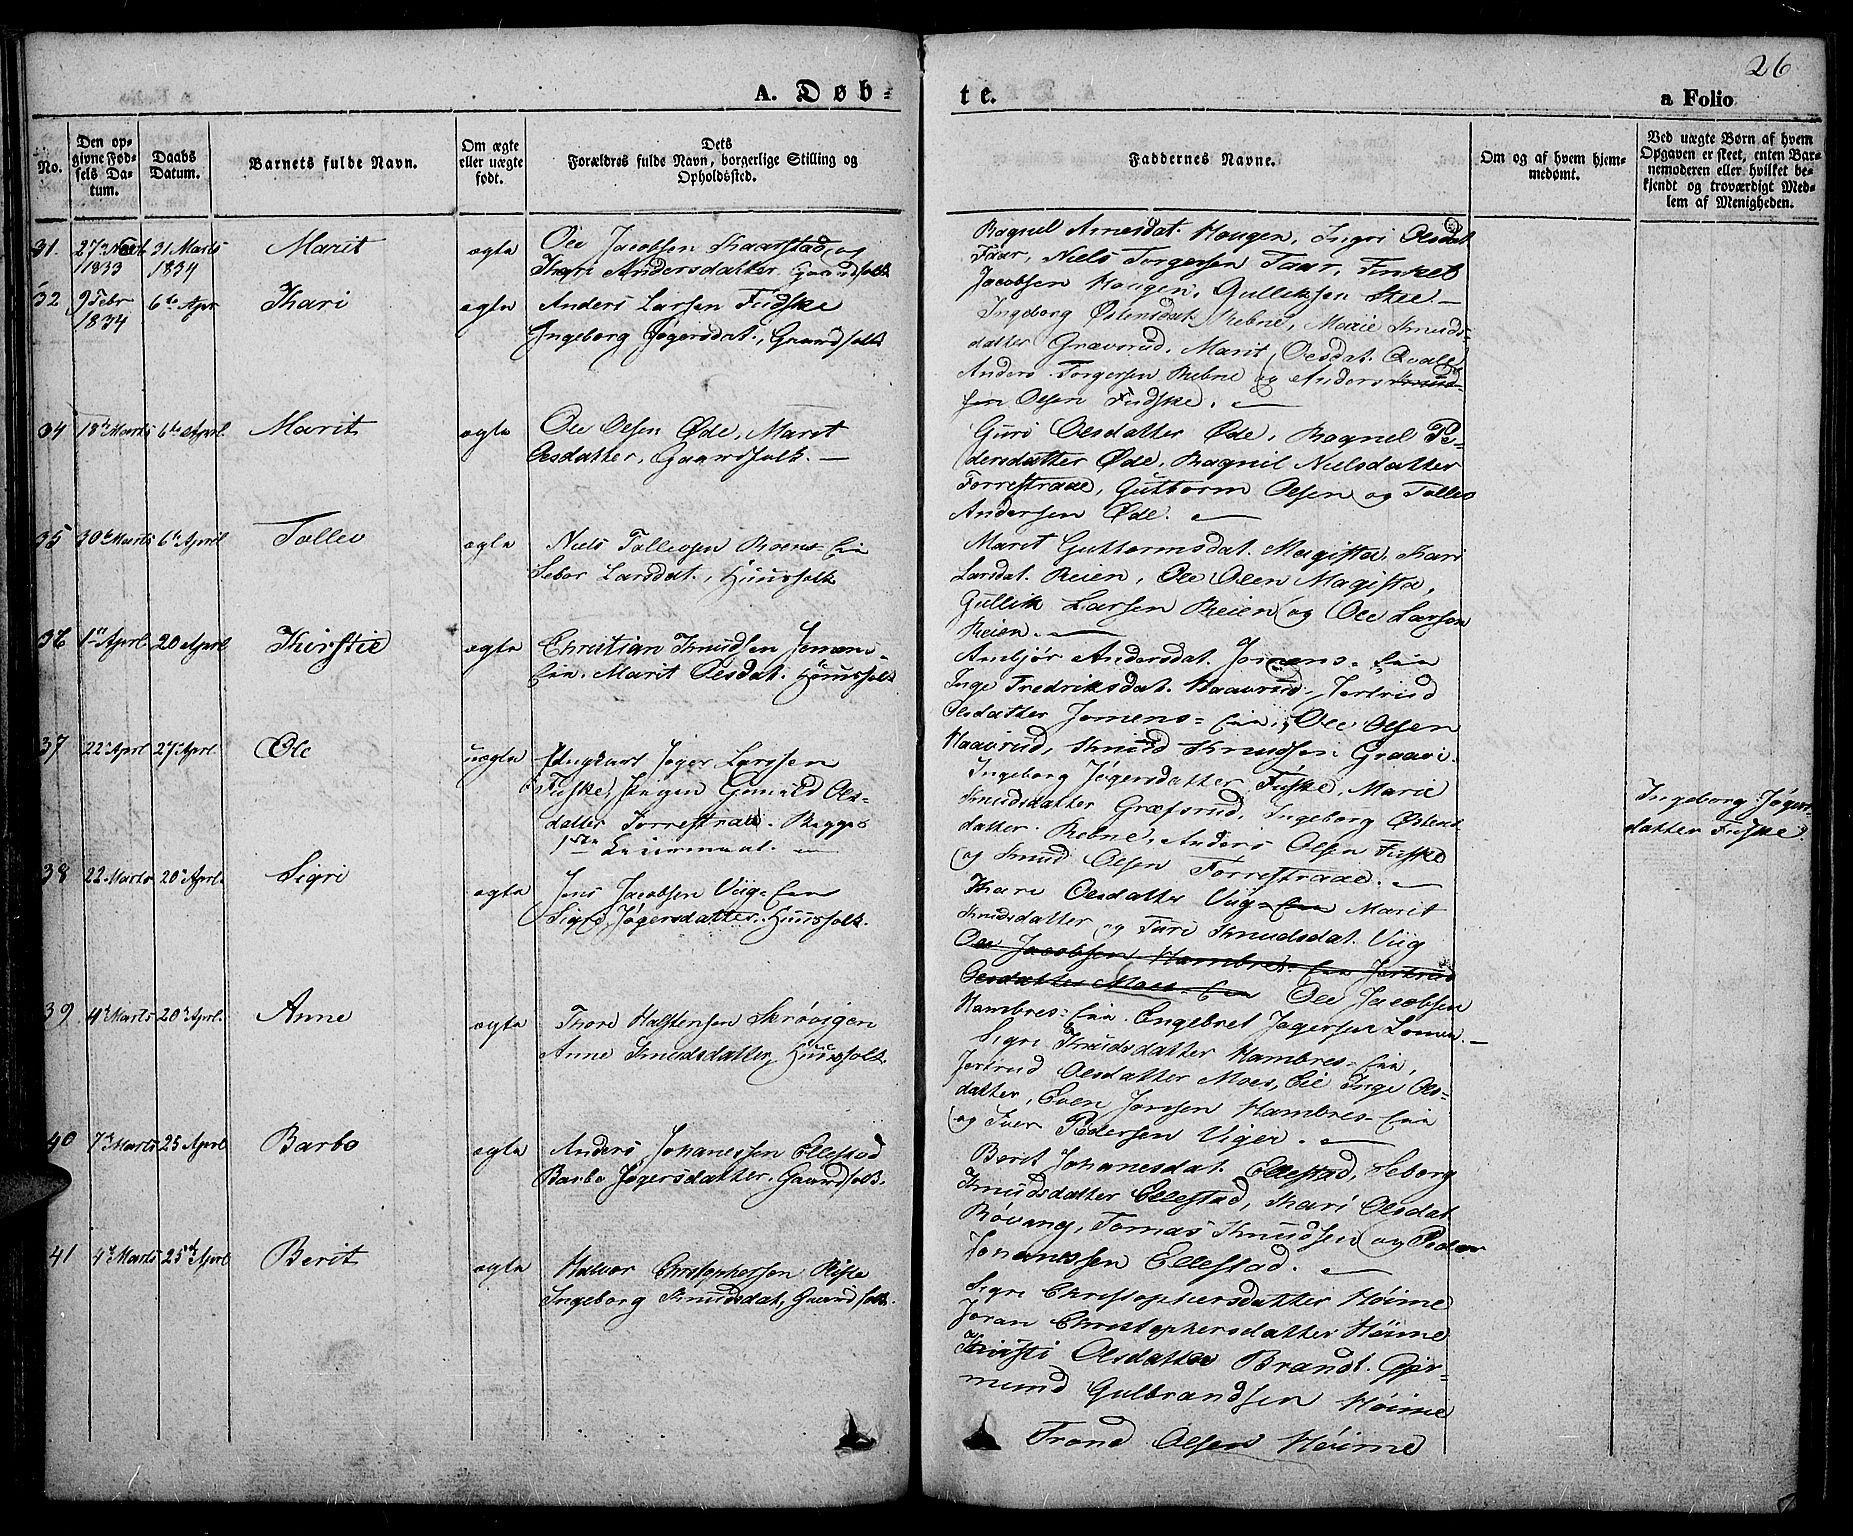 26
A. Døb-
te.
a Folio
No.
Den op-
givne Fød-
sels Da-
tum.
Daabs
Datum.
Barnets fulde Navn.
Om ægte
eller uægte
født.
Dets
Forældres fulde Navn, borgerlige Stilling og
Opholdssted.
Faddernes Navne.
Om og af hvem hjem-
medømt.
Ved uægte Børn af hvem
Opgaven er skeet, enten Bar-
nemoderen eller hvilket be-
kjendt og troværdigt Med-
lem af Menigheden.
31. 31 Marts Marit ægte Ole Jacobsen Kaarstad og
1833 1834 Andersdatter, Gaardfolk
Ragnel Arnesdat. Hougen, Ingri Olsdat
Faar, Niels Torgersen Faar,
Jacobsen Hougen, Gulliksen
32 9 Febr 6te Apr Kari ægte Anders Larsen Fudske
1834 Ingeborg Jøgersdat., Gaardfolk
Ingeborg Østensdat. Rebne, Marie Knuds-
datter Grævsrud, Marit Olsdat. Qvale
Anders Torgersen Rebne og Anders Knud-
sen Olsen Fudske.
34 18de Marts 6te April Marit ægte Ole Olsen Øde, Marit
Olsdatter, Gaardfolk. —
Guri Olsdatter Øde, Ragnel Pe-
dersdatter Øde, Ragnil Nielsdatter
Forrestraae, Guttorm Olsen og Tollev
Andersen Øde.
35 30te Marts 6te April Tollev ægte Niels Tollevsen Roens-Eie
Sebor Larsdat., Huusfolk
Marit Guttormsdat. Magista, Kari
Larsdat. Reien, Ole Olsen Magista,
Gullik Larsen Reien og Ole Larsen
Reien.
36 1ste April 20 April Kirstie ægte Christian Knudsen Jomen-
Eie. Marit Olsdat. Huusfolk
Ambjør Andersdat. Jomens-Eie
Inge Fredriksdat. Haavrud, Jertrud
Olsdatter Jomens-Eie, Ole Olsen
Haavrud, Knud Knudsen Graavi.
37 22de April 27de April Ole uægte Ungkarl Jøger Larssen
Fuske, Pigen Gunild Ols-
datter Forrestraae. Begges
1ste Leiermaal.
Ingeborg Jøgersdatter Fuske, Marie
Knudsdatter Græfsrud, Ingeborg Østens-
datter Rebne, Anders Olsen Fuske
og Knud Olsen Forrestraae.
Ingeborg Jøgers-
datter Fuske.
38 22 Marts 20de April Sigri ægte Jens Jacobsen Viig-Eie
Sigri Jøgersdatter, Huusfolk.
Kari Olsdatter Viig-Eie Marit
Knudsdatter og Turi Knudsdat. Viig
Ole Jacobsen Hambres-Eie Jertrud
Olsdatter Moes-Eie Ole Jacobsen
Hambres-Eie. Engebret Jøgersen Lomen.
39 4de Marts 20de April Anne ægte Thore Halstensen Skrøvigen
Anne Knudsdatter, Huusfolk
Sigri Knudsdatter Hambres-Eie,
Jertrud Olsdatter Moes-Eie Inge Ols-
datter, Even Jonsen Hambres-Eie
og Iver Pedersen Viger.
40 7de Marts 25 April Barbo ægte Anders Johanessen Ellestad
Barbo Jøgersdatter, Gaardfolk.
Berit Johanesdat. Ellestad, Seborg
Knudsdatter Ellestad, Kari Olsdat
Røvang, Tomas Knudsen og Peder
Johanessen Ellestad.
41 4de Marts 25de April Berit ægte Halvor Christophersen Riste
Ingeborg Knudsdat, Gaardfolk.
Sigri Christophersdatter Høime
Joran Christophersdatter Høime
Kirsti Olsdatter Brandt, Gjer-
mund Gulbrandsen Høime
Trond Olsen Høime